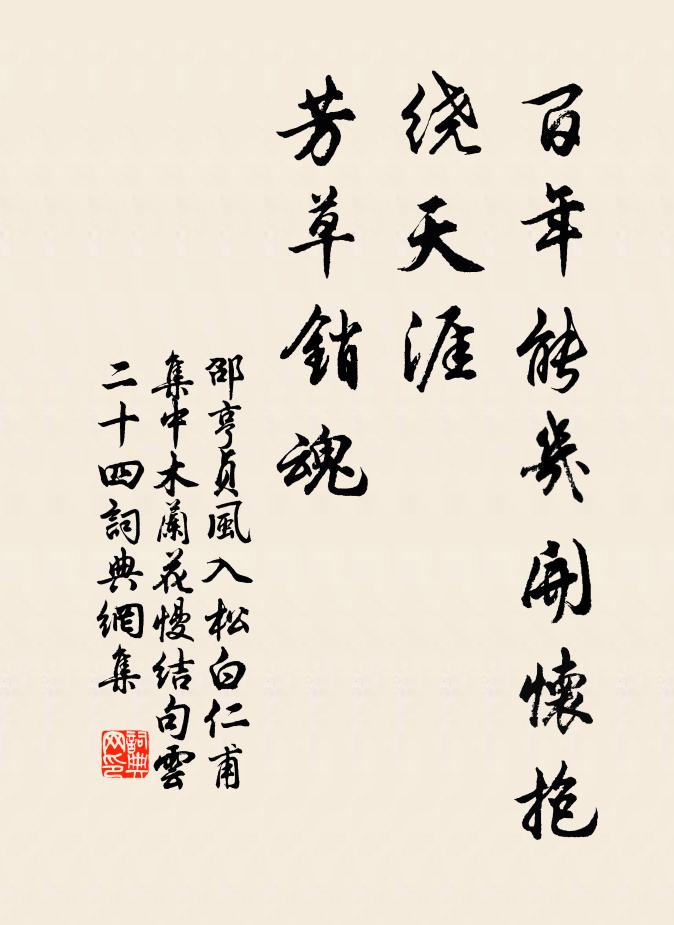 百年能幾開懷抱
绕天涯
芳草銷魂
邵亨貞風入松白仁甫
集中木蘭花慢結句雲
二十四詞典網集
詞典網印